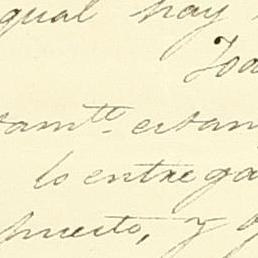 gual hay
Tod
tamte. estan
lo entrega
puesto, y